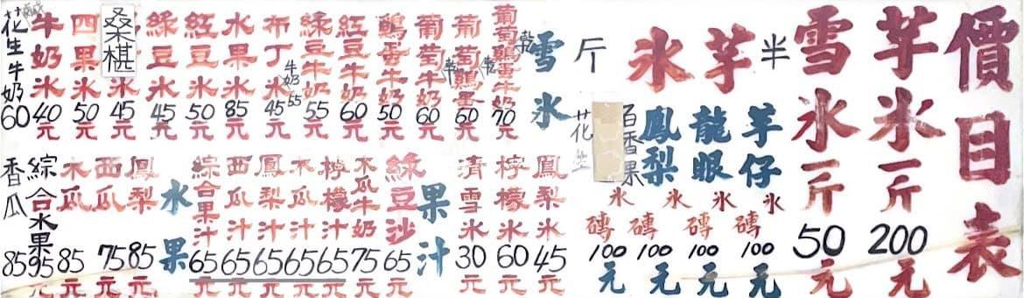 價目表
芋氷一斤200元
雪氷一斤50元
半芋氷斤
芋仔氷磚100元
龍眼氷磚100元
鳳梨氷磚100元
百香果氷磚100元
花生
雪氷
葡萄鷄蛋牛奶70元
葡萄鷄蛋60元
葡萄牛奶60元
鷄蛋牛奶50元
紅豆牛奶60元
綠豆牛奶55元
布丁氷45元
牛奶55
水果氷85元
紅豆氷50元
綠豆氷45元
桑椹氷45元
四果氷50元
牛奶氷40元
花生牛奶60
鳳梨氷45元
檸檬氷60元
清雪氷30元
果汁
綠豆沙65元
木瓜牛奶75元
檸檬汁65元
木瓜汁65元
鳳梨汁65元
西瓜汁65元
綜合果汁65元
水果
鳳梨85元
西瓜75元
木瓜85元
綜合水果95元
香瓜85